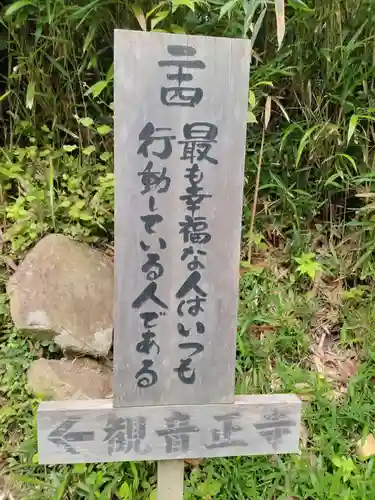 二十四
最も幸福な人はいつも
行動している人である
← 観音正寺